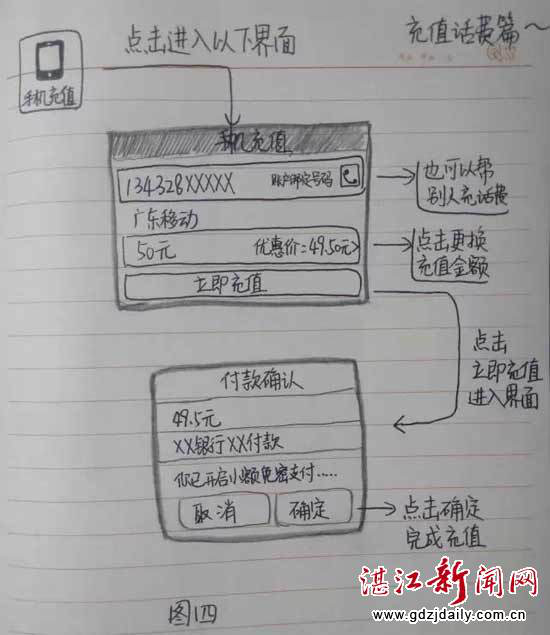 充值话费篇～
点击进入以下界面
手机充值
手机充值
134328XXXXX 账户绑定号码
也可以帮
别人充话费
广东移动
50元 优惠价:49.50元>
点击更换
充值金额
立即充值
点击
立即充值
进入界面
付款确认
49.5元
XX银行XX付款
你已开启小额免密支付.....
取消 确定
点击确定
完成充值
图四
湛江新闻网
www.gdzjdaily.com.cn